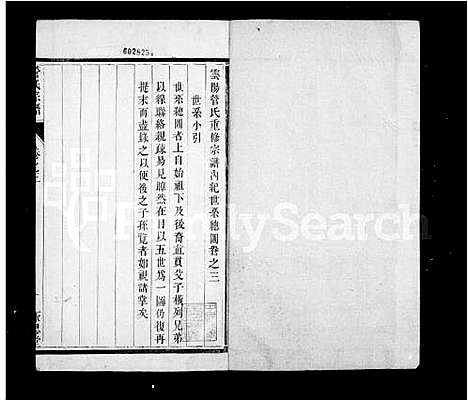 6028254
雲陽管氏重修宗譜內紀世系總圖卷之三
世系小引
世系總圖者上自始祖下及後裔直貫父子橫列兄弟
以綵聯絡親疎易見瞭然在目以五世爲一圖仍復再
提末而盡錄之以便後之子孫覽者如視諸掌矣
FamilySearch